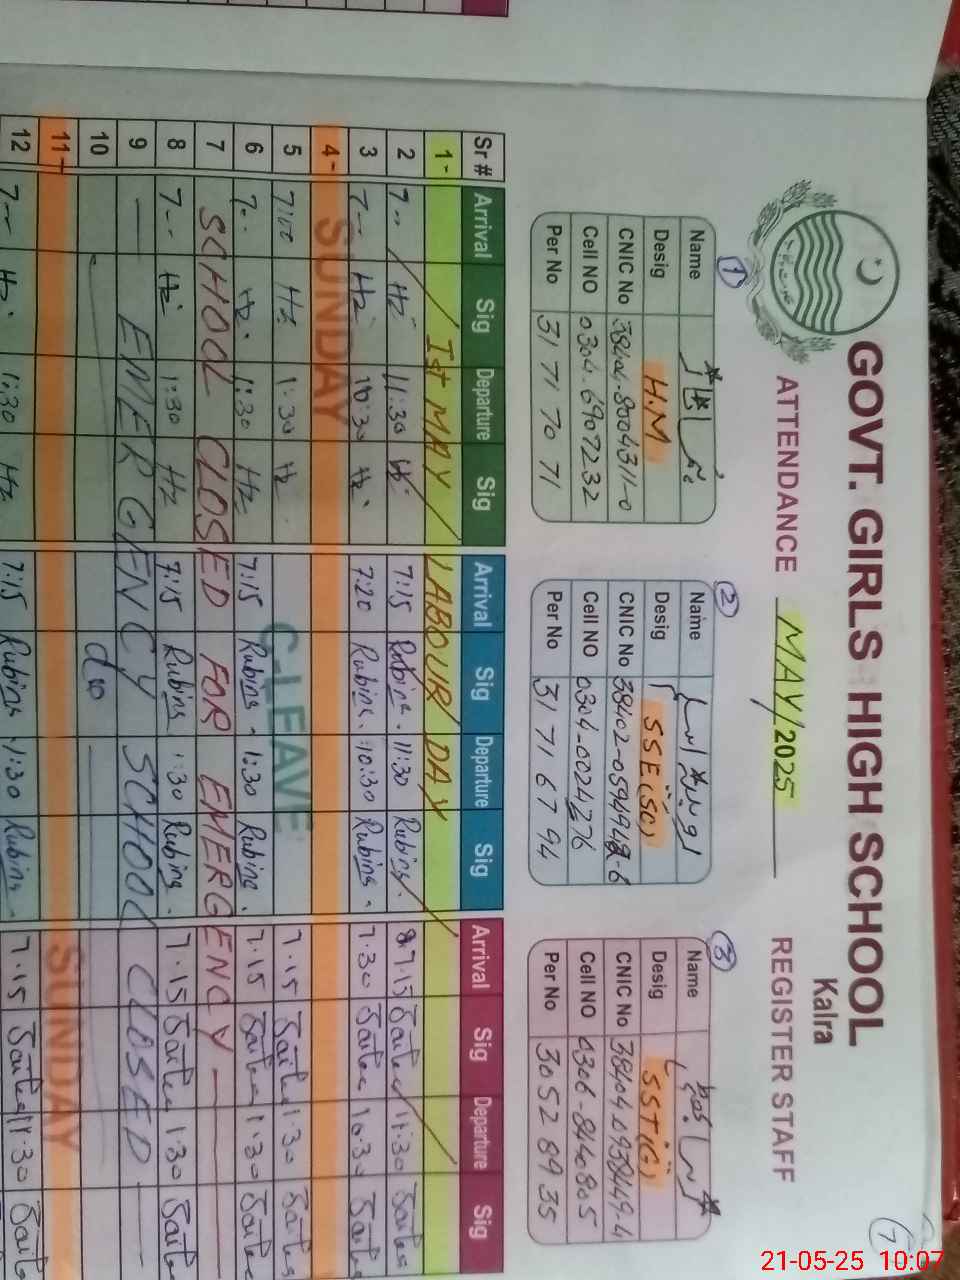 GOVT. GIRLS HIGH SCHOOL
Kalra
ATTENDANCE MAY/2025 REGISTER STAFF
7
1
Name
Desig H.M
CNIC No 38404-8004311-0
Cell NO 0304-6907232
Per No 31717071
2
Name
Desig SSE(SC)
CNIC No
Cell NO 0304-0024276
Per No 31716794
3
Name
Desig SST(G)
CNIC No 38404-0938449-4
Cell NO 0306-8440805
Per No 30528935
Sr # Arrival Sig Departure Sig Arrival Sig Departure Sig Arrival Sig Departure Sig
1- 1st MAY / LABOUR DAY
2 7-- Hz 11:30 Hz 7:15 Rubina. 11:30 Rubina. 7.15 11.30
3 7-- Hz 10:30 Hz. 7:20 Rubina. 10:30 Rubina. 7.30 10.30
4- SUNDAY
5 7:00 Hz 1:30 Hz C-LEAVE 7.15 1.30
6 7-- Hz. 1:30 Hz 7:15 Rubina. 1:30 Rubina. 7.15 1.30
7 SCHOOL CLOSED FOR EMERGENCY —
8 7-- Hz 1:30 Hz 7:15 Rubina 1:30 Rubina. 7.15 1.30
9 — EMERGENCY SCHOOL CLOSED —
10 do
11- SUNDAY
12 7-- Hz. 1:30 Hz 7:15 Rubina. 1:30 Rubina. 7.15 1.30
21-05-25 10:07